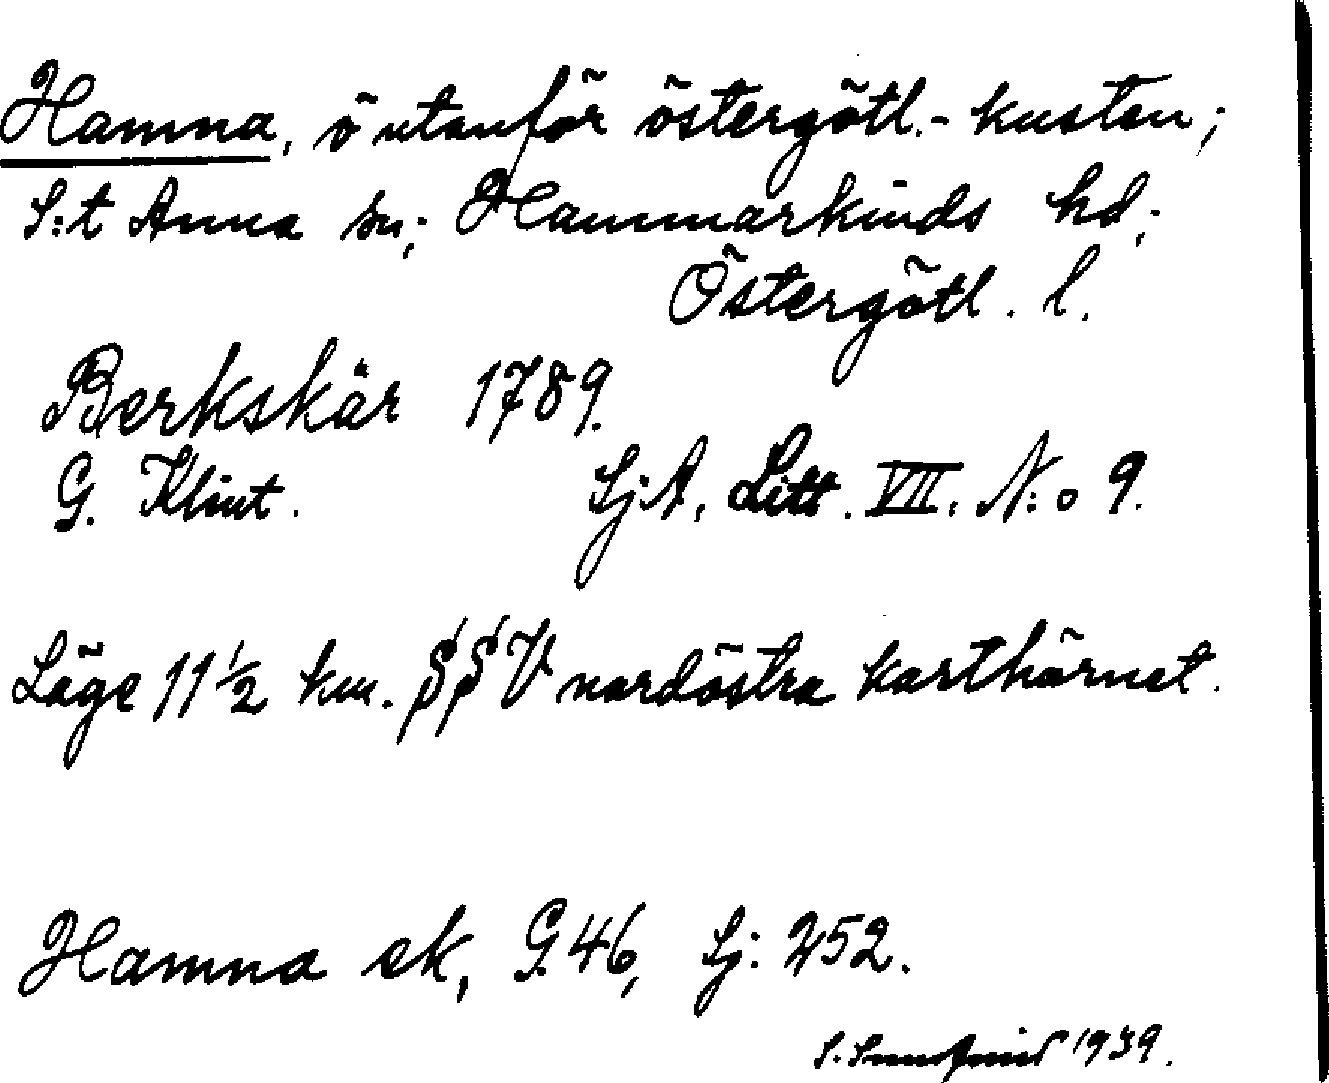 Hamna, ö utanför östergötl.- kusten;
S:t Anna sn; Hammarkinds hd;
Östergötl. l.
Berkskär 1789.
G. Klint. SjA, Litt. VII. N:o 9.
Läge 11 1/2 km. SSV nordöstra karthörnet.
Hamna ek, G.46, Sj: 252.
S. 1939.